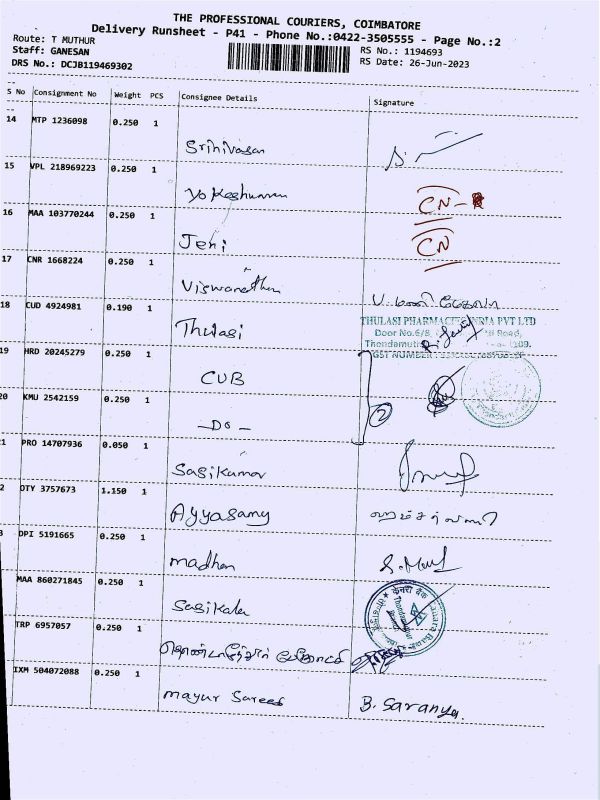 THE PROFESSIONAL COURIERS, COIMBATORE
Delivery Runsheet - P41 - Phone No.:0422-3505555 - Page No.:2
Route: T MUTHUR
Staff: GANESAN
DRS No.: DCJB119469302
RS No.: 1194693
RS Date: 26-Jun-2023
S No Consignment No Weight PCS Consignee Details Signature
14 MTP 1236098 0.250 1
Srinivasan
15 VPL 218969223 0.250 1
Yokeshwaran CN-
16 MAA 103770244 0.250 1
Jeni CN
17 CNR 1668224 0.250 1
Viswanathan
18 CUD 4924981 0.190 1
Thulasi
THULASI PHARMACIES INDIA PVT LTD
Door No.6/8, Road,
GST NUMBER
19 HRD 20245279 0.250 1
CUB
20 KMU 2542159 0.250 1
-Do- 2
1 PRO 14707936 0.050 1
Sasikumar
2 DTY 3757673 1.150 1
Ayyasamy
3 DPI 5191665 0.250 1
madhan
MAA 860271845 0.250 1
Sasikala
केनरा बैंक Canara Bank
TRP 6957057 0.250 1
IXM 504072088 0.250 1
mayur Sarees B. Saranya.